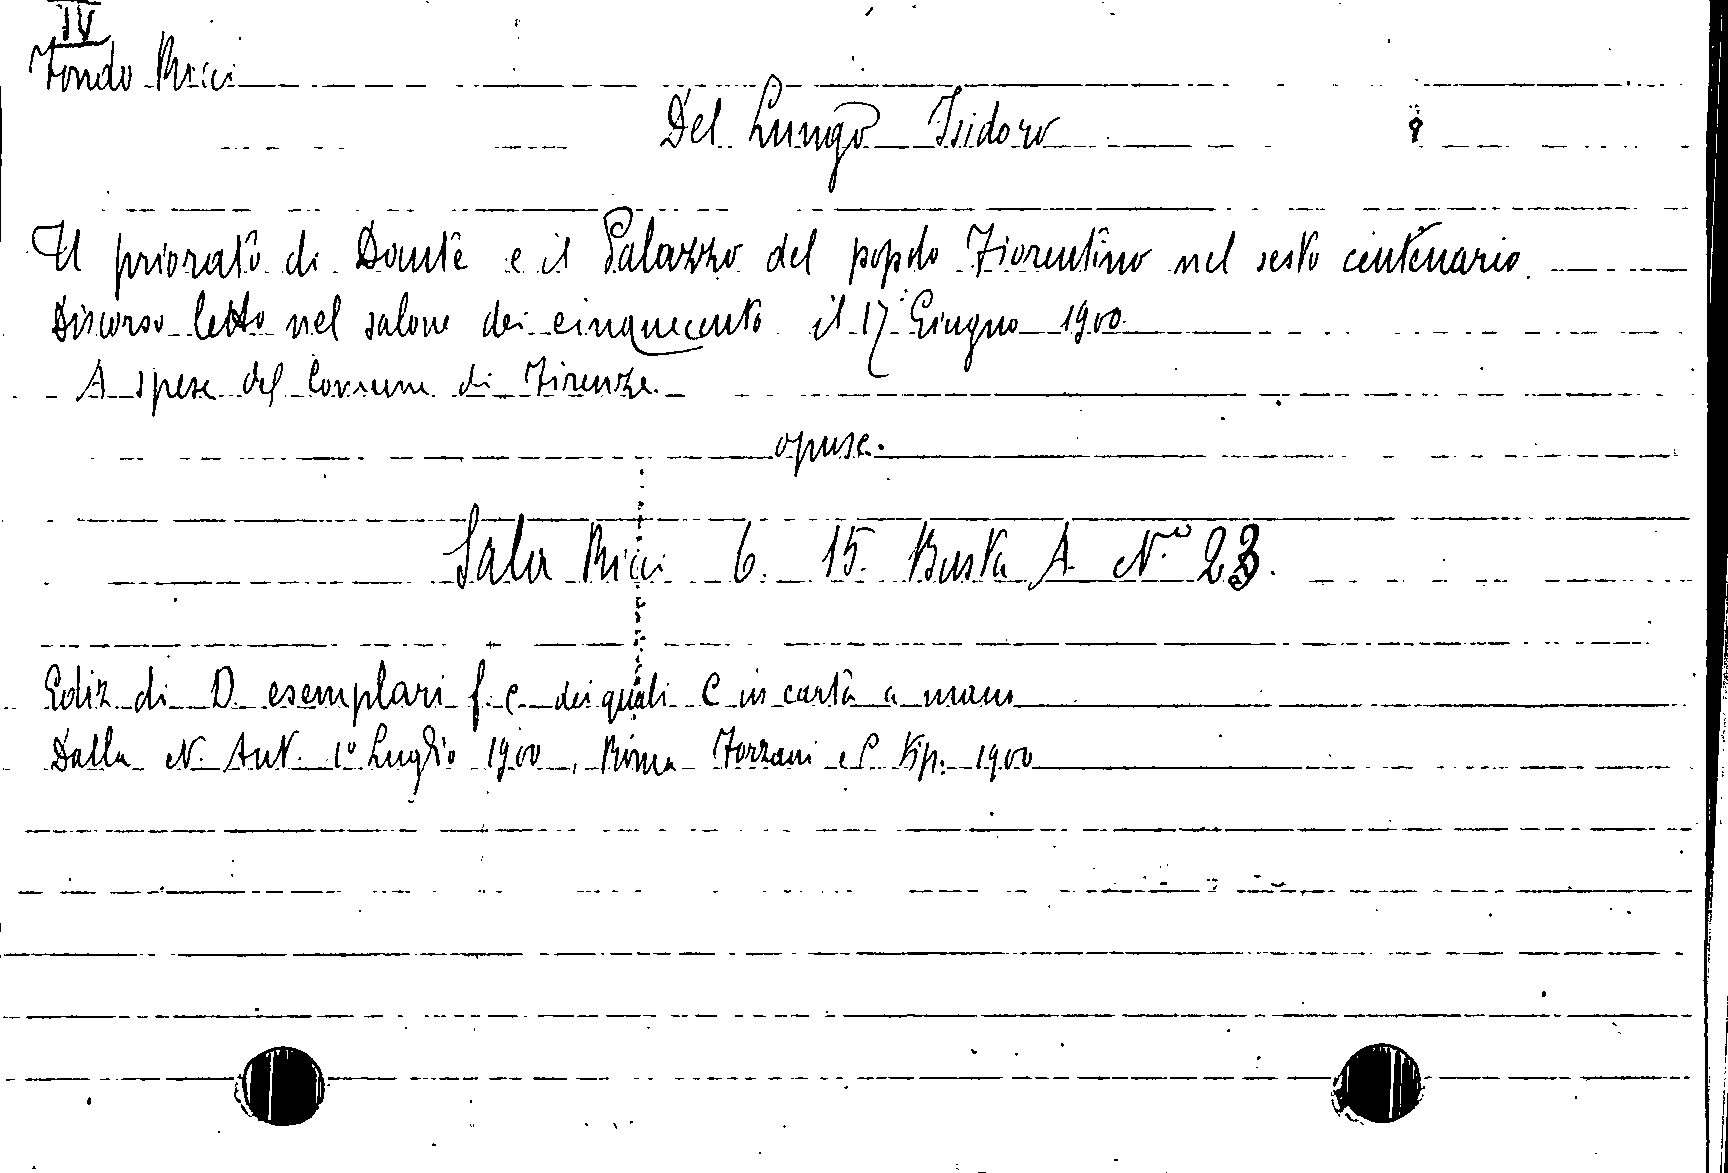 IV
Fondo Ricci
Del Lungo Isidoro
8
Il priorato di Dante e il Palazzo del popolo Fiorentino nel sesto centenario.
Discorso letto nel salone dei cinquecento il 17 Giugno 1900
A spese del Comune di Firenze.
opusc.
Sala Ricci 6. 15. Busta A N.o 23.
Ediz di D esemplari f. c. dei quali C in carta a mano
Dalla N. Ant. 1o Luglio 1900, Roma Forzani e C tip. 1900